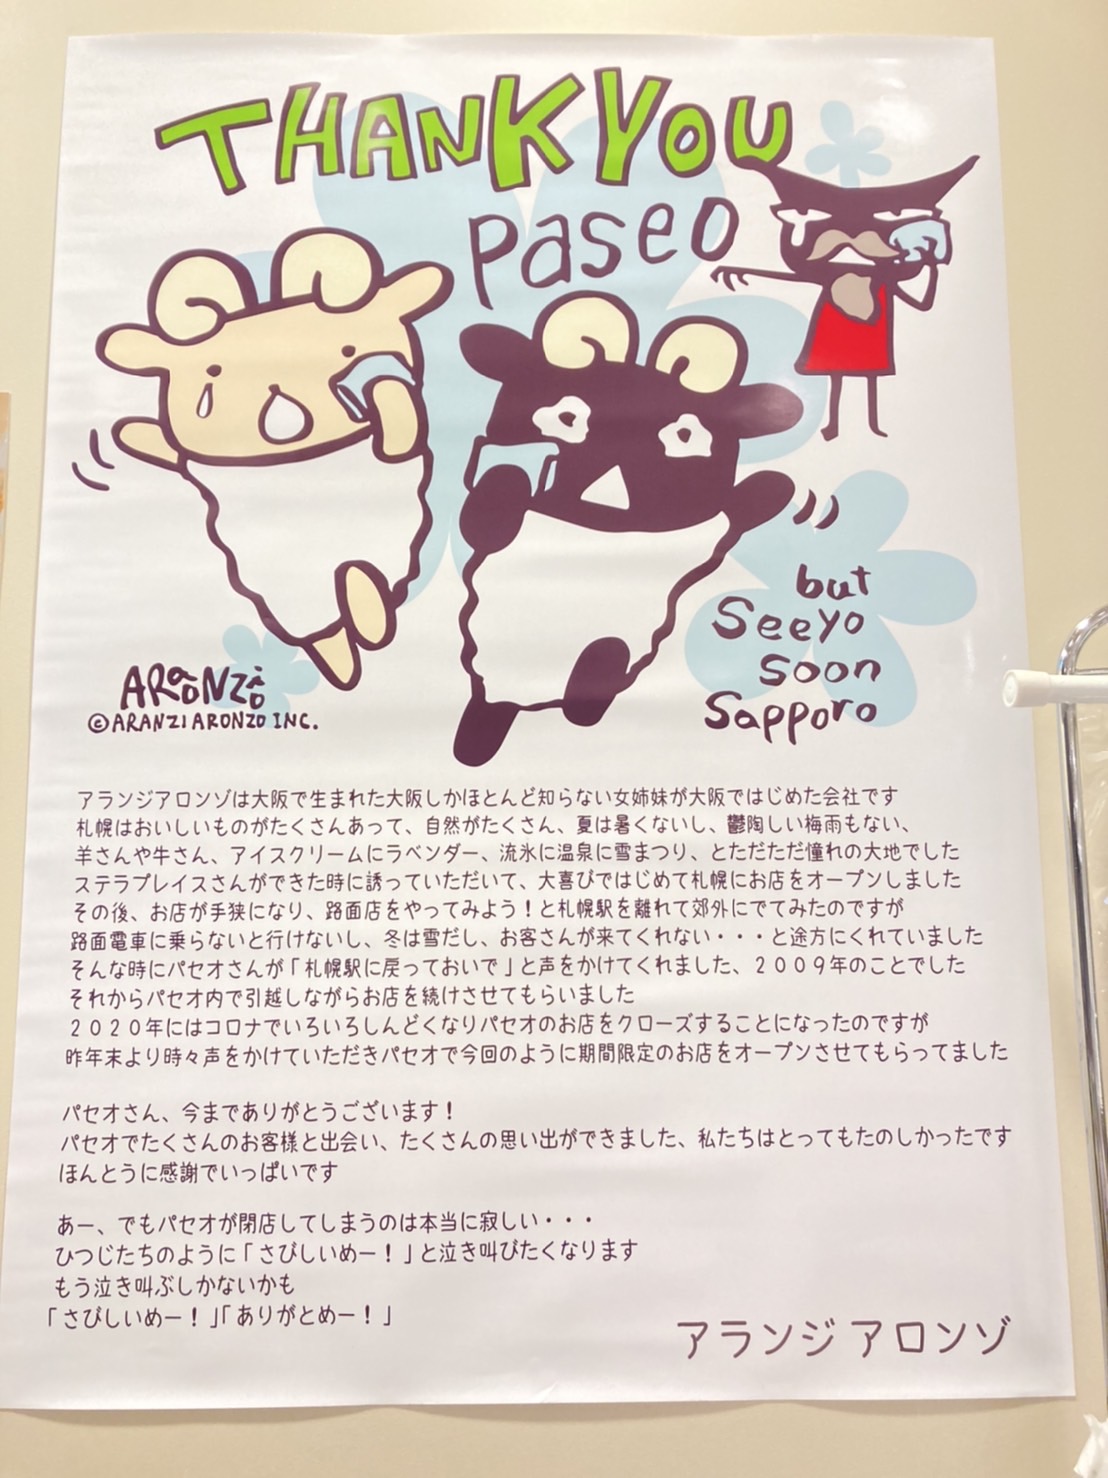 THANK YOU
paseo
but
Seeyo
soon
Sapporo
ARAONZIO
©ARANZI ARONZO INC.
アランジアロンゾは大阪で生まれた大阪しかほとんど知らない女姉妹が大阪ではじめた会社です
札幌はおいしいものがたくさんあって、自然がたくさん、夏は暑くないし、鬱陶しい梅雨もない、
羊さんや牛さん、アイスクリームにラベンダー、流氷に温泉に雪まつり、とただただ憧れの大地でした
ステラプレイスさんができた時に誘っていただいて、大喜びではじめて札幌にお店をオープンしました
その後、お店が手狭になり、路面店をやってみよう！と札幌駅を離れて郊外にでてみたのですが
路面電車に乗らないと行けないし、冬は雪だし、お客さんが来てくれない・・・と途方にくれていました
そんな時にパセオさんが「札幌駅に戻っておいで」と声をかけてくれました、２００９年のことでした
それからパセオ内で引越しながらお店を続けさせてもらいました
２０２０年にはコロナでいろいろしんどくなりパセオのお店をクローズすることになったのですが
昨年末より時々声をかけていただきパセオで今回のように期間限定のお店をオープンさせてもらってました
パセオさん、今までありがとうございます！
パセオでたくさんのお客様と出会い、たくさんの思い出ができました、私たちはとってもたのしかったです
ほんとうに感謝でいっぱいです
あー、でもパセオが閉店してしまうのは本当に寂しい・・・
ひつじたちのように「さびしいめー！」と泣き叫びたくなります
もう泣き叫ぶしかないかも
「さびしいめー！」「ありがとめー！」
アランジ アロンゾ